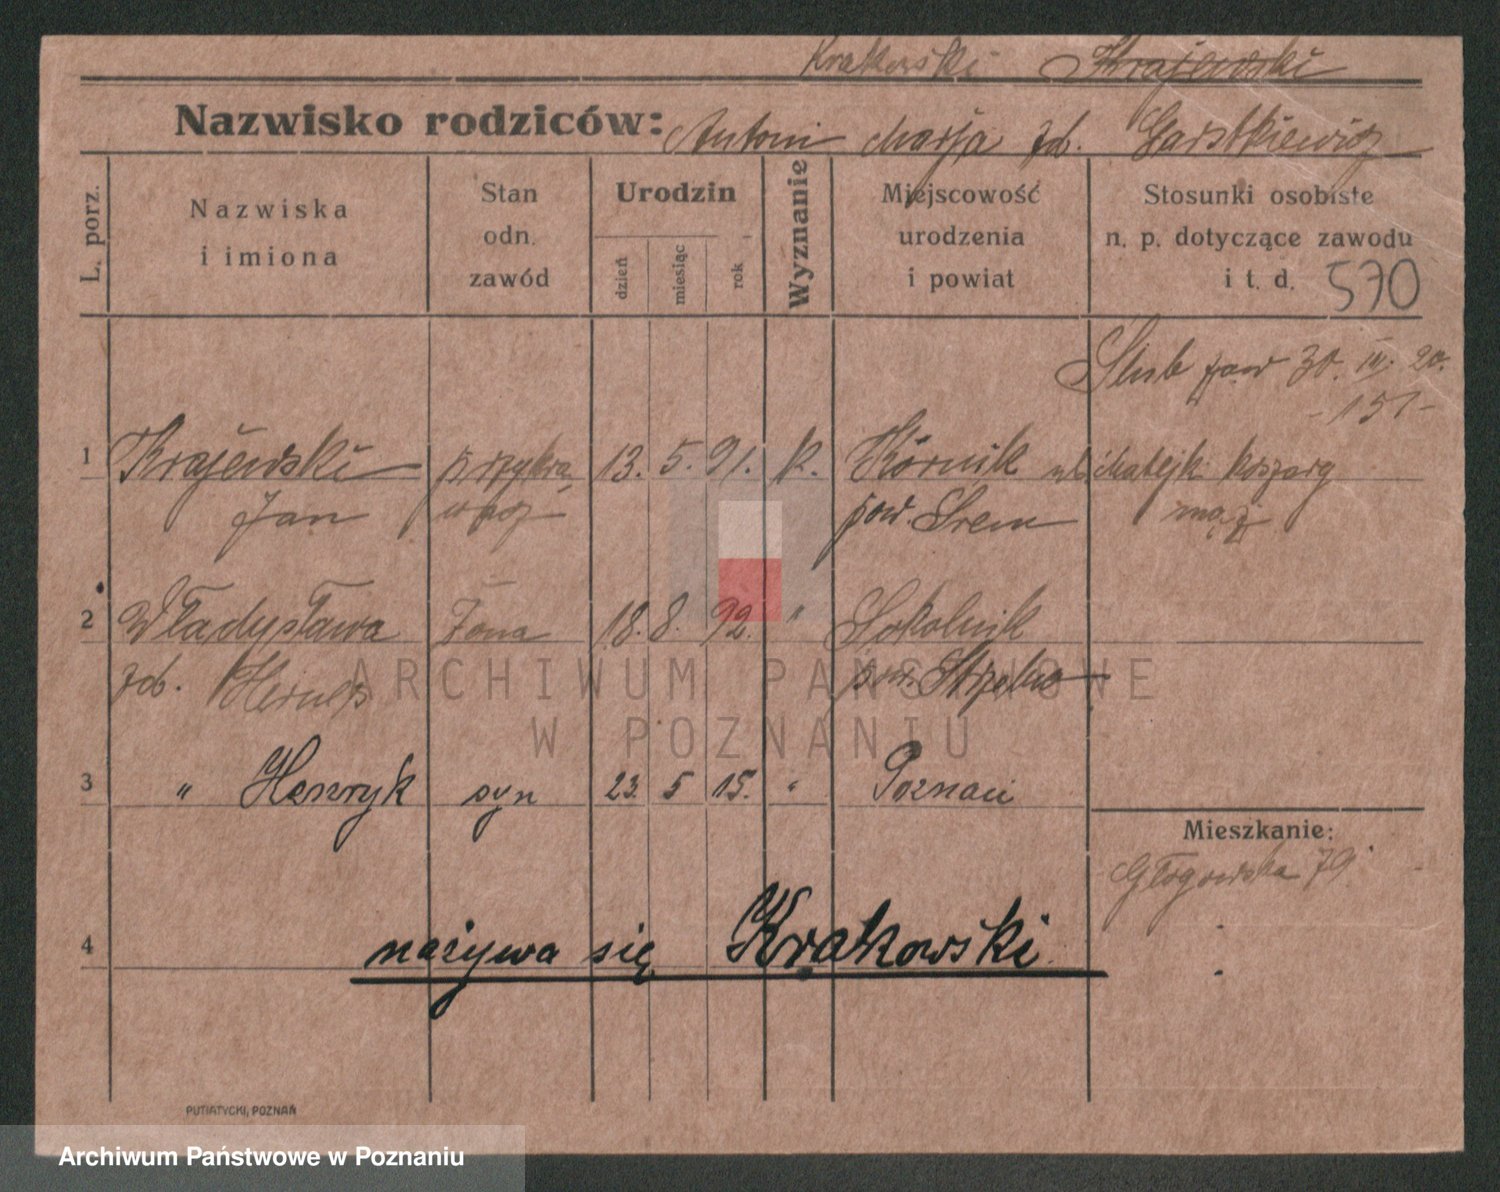 Krakowski Krajewski
Nazwisko rodziców: Antoni Marja zd. Garstkiewicz
L. porz.
Nazwiska
i imiona
Stan
odn.
zawód
Urodzin
dzień
miesiąc
rok
Wyznanie
Miejscowość
urodzenia
i powiat
Stosunki osobiste
n. p. dotyczące zawodu
i t. d. 570
Ślub zaw 30. III. 20.
-151-
1 Krajewski przykra 13. 5. 91. k. Kórnik koszary
Jan wacz pow. Śrem mąż
2 Władysława żona 18. 8. 92. " Sokolnik
zd. pow. Strzelno
3 " Henryk syn 23. 5 15. " Poznań
Mieszkanie:
Głogowska 79
4 nazywa się Krakowski
PUTIATYCKI, POZNAŃ
ARCHIWUM PAŃSTWOWE
W POZNANIU
Archiwum Państwowe w Poznaniu